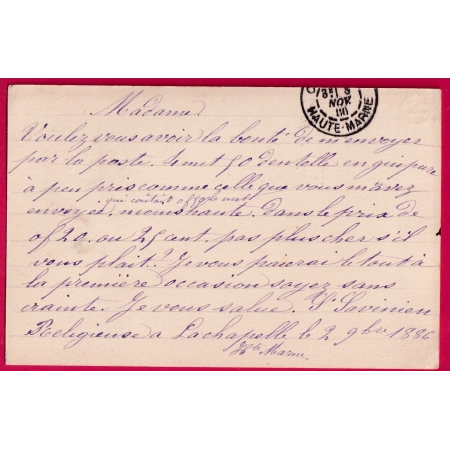 3 NOV.
HAUTE-MARNE
Madame
Voulez vous avoir la bonté de m'envoyer
par la poste met 50 dentelle en guipure
à peu pris comme celle que vous m'avez
qui coûtait
envoyet moins haute dans le prix de
of 20. ou 25 cent. pas plus cher s'il
vous plait? Je vous paierai le tout à
la première occasion soyez sans
crainte. Je vous salue. Sr Savinien
Religieuse à Lachapelle le 2 9bre 1886
Hte Marne.